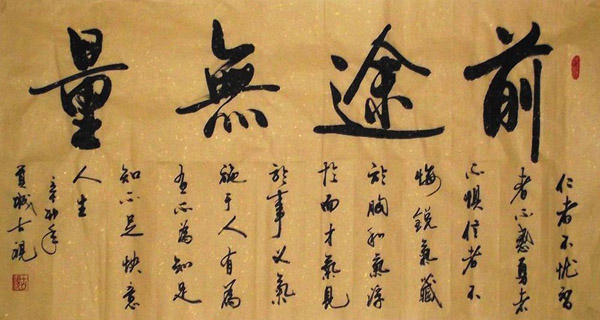 前途無量
仁者不忧智
者不惑勇者
不惧信者不
悔锐氣藏
於胸和氣浮
於面才氣見
於事义氣
施于人有為
有不為知足
知不足快意
人生
辛卯年